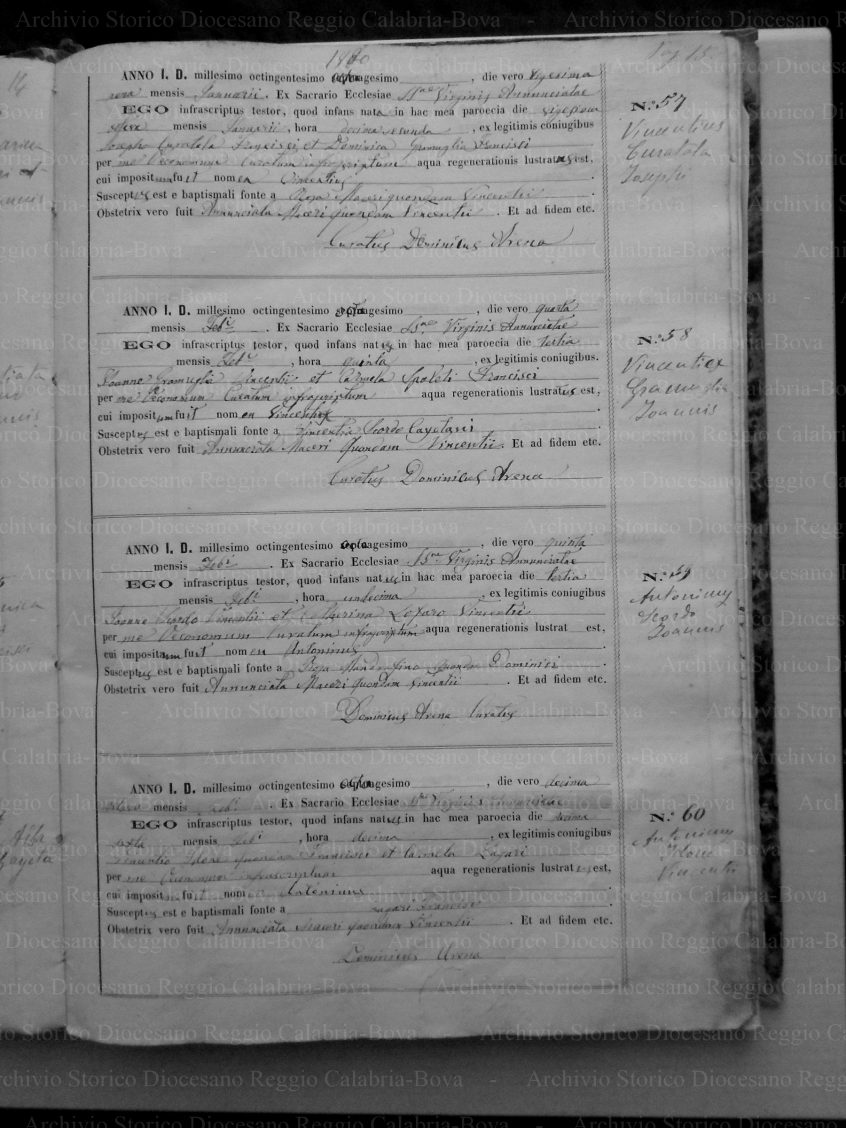 1880
ANNO I. D. millesimo octingentesimo octuagesimo, die vero vigesima
nona mensis Januarii. Ex Sacrario Ecclesiae SS.mae Virginis Annunciatae
EGO infrascriptus testor, quod infans nata in hac mea paroecia die vigesima
mensis Januarii, hora decima secunda, ex legitimis coniugibus
Josepho Curatola Francisci, et Dominica Gramuglia Francisci
per me Oeconomum Curatum infrascriptum aqua regenerationis lustratus est,
cui impositum fuit nomen Vincentius
Susceptus est e baptismali fonte a Rosa Maceri quondam Vincentii.
Obstetrix vero fuit Annunciata Maceri quondam Vincentii. Et ad fidem etc.
Curatus Dominicus Arena
N.° 57
Vincentius
Curatola
Josephi
ANNO I. D. millesimo octingentesimo octuagesimo, die vero quarta
mensis Feb.i. Ex Sacrario Ecclesiae SS.mae Virginis Annunciatae
EGO infrascriptus testor, quod infans natus in hac mea paroecia die tertia
mensis Feb.i, hora quinta, ex legitimis coniugibus.
Joanne Gramuglia Vincentii et Carmela Spoleti Francisci
per me Oeconomum Curatum infrascriptum aqua regenerationis lustratus est,
cui impositum fuit nomen Vincentius
Susceptus est e baptismali fonte a Vincentia Scordo Cayetani
Obstetrix vero fuit Annunciata Maceri quondam Vincentii. Et ad fidem etc.
Curatus Dominicus Arena
N.° 58
Gramuglia
Joannis
ANNO I. D. millesimo octingentesimo octuagesimo, die vero quinta
mensis Feb.i. Ex Sacrario Ecclesiae SS.mae Virginis Annunciatae
EGO infrascriptus testor, quod infans natus in hac mea paroecia die tertia
mensis Feb.i, hora undecima, ex legitimis coniugibus
Joanne Scordo Vincentii et Marina Lofaro Vincentii
per me Oeconomum Curatum infrascriptum aqua regenerationis lustrat est,
cui impositum fuit nomen Antoninus
Susceptus est e baptismali fonte a Rosa quondam Dominici.
Obstetrix vero fuit Annunciata Maceri quondam Vincentii. Et ad fidem etc.
Dominicus Arena Curatus
N.° 59
Antoninus
Scordo
Joannis
ANNO I. D. millesimo octingentesimo octuagesimo, die vero decima
mensis Feb.i. Ex Sacrario Ecclesiae SS.mae Virginis Annunciatae
EGO infrascriptus testor, quod infans natus in hac mea paroecia die decima
sexta mensis Feb.i, hora decima, ex legitimis coniugibus
quondam Francisci et Carmela Lagari
per me Oeconomum infrascriptum aqua regenerationis lustratus est,
cui impositum fuit nomen Antoninus
Susceptus est e baptismali fonte a Lagari Francisco.
Obstetrix vero fuit Annunciata Maceri quondam Vincentii. Et ad fidem etc.
Dominicus Arena
N.° 60
Antoninus
Archivio Storico Diocesano Reggio Calabria-Bova